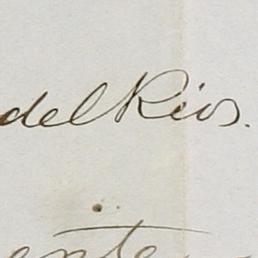 del Rios.
ente